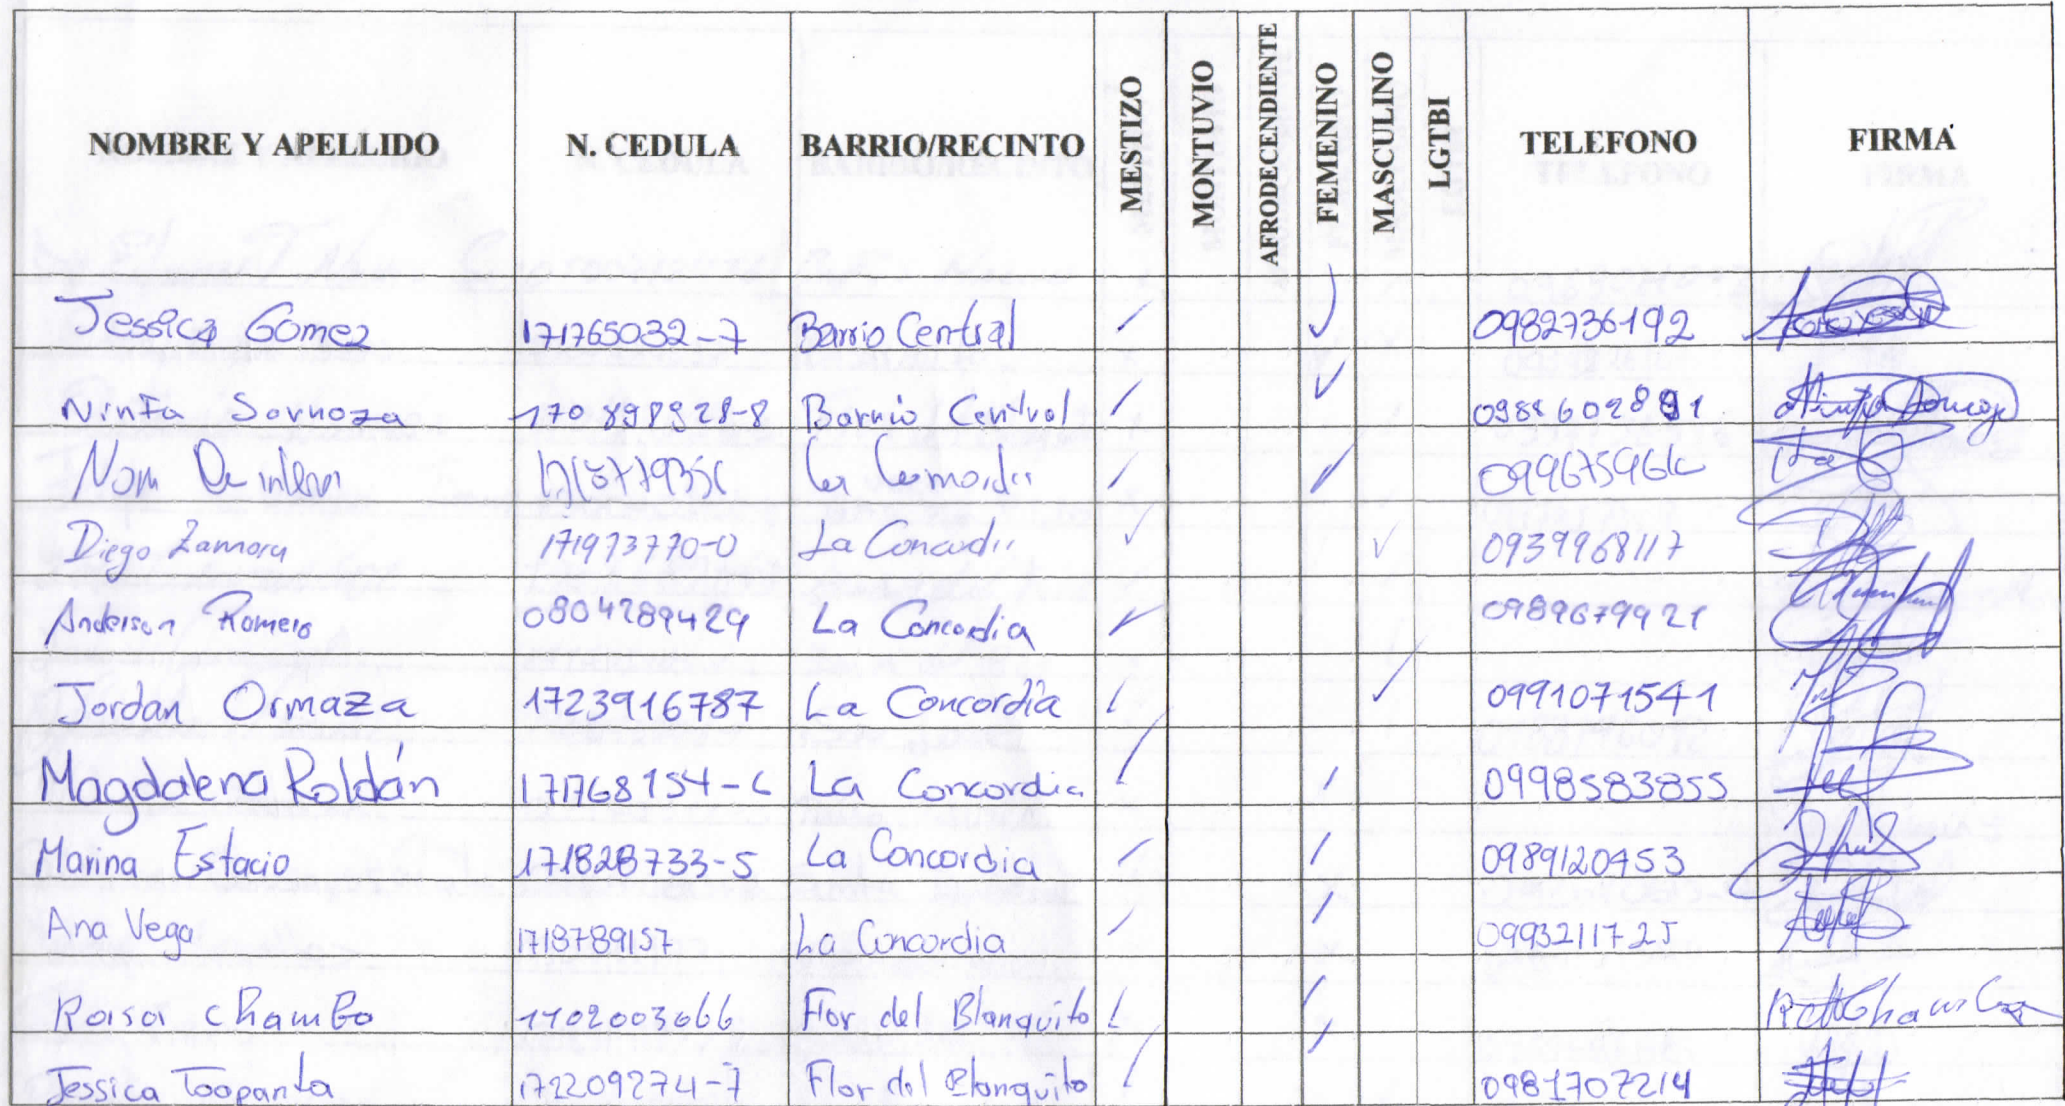 NOMBRE Y APELLIDO N. CEDULA BARRIO/RECINTO MESTIZO MONTUVIO AFRODECENDIENTE FEMENINO MASCULINO LGTBI TELEFONO FIRMA
Jessica Gomez 171765032-7 Barrio Central ✓ ✓ 0982736192
Ninfa 170898928-8 Barrio Central ✓ ✓
✓ ✓
Diego Zamora 171973770-0 La Concordia ✓ ✓ 0939968117
Anderson Romero 0804289429 La Concordia ✓ 0989679921
Jordan Ormaza 1723916787 La Concordia ✓ ✓ 0991071541
Magdalena Roldán 171768154-6 La Concordia ✓ ✓ 0998583855
Marina Estacio 171828733-5 La Concordia ✓ ✓ 0989120453
Ana Vega 1718789157 La Concordia ✓ ✓ 0993211725
Raisa Chamba 1102003666 Flor del Blanquito ✓ ✓
Jessica Toapanta 172209274-7 Flor del Blanquito ✓ ✓ 0981707214